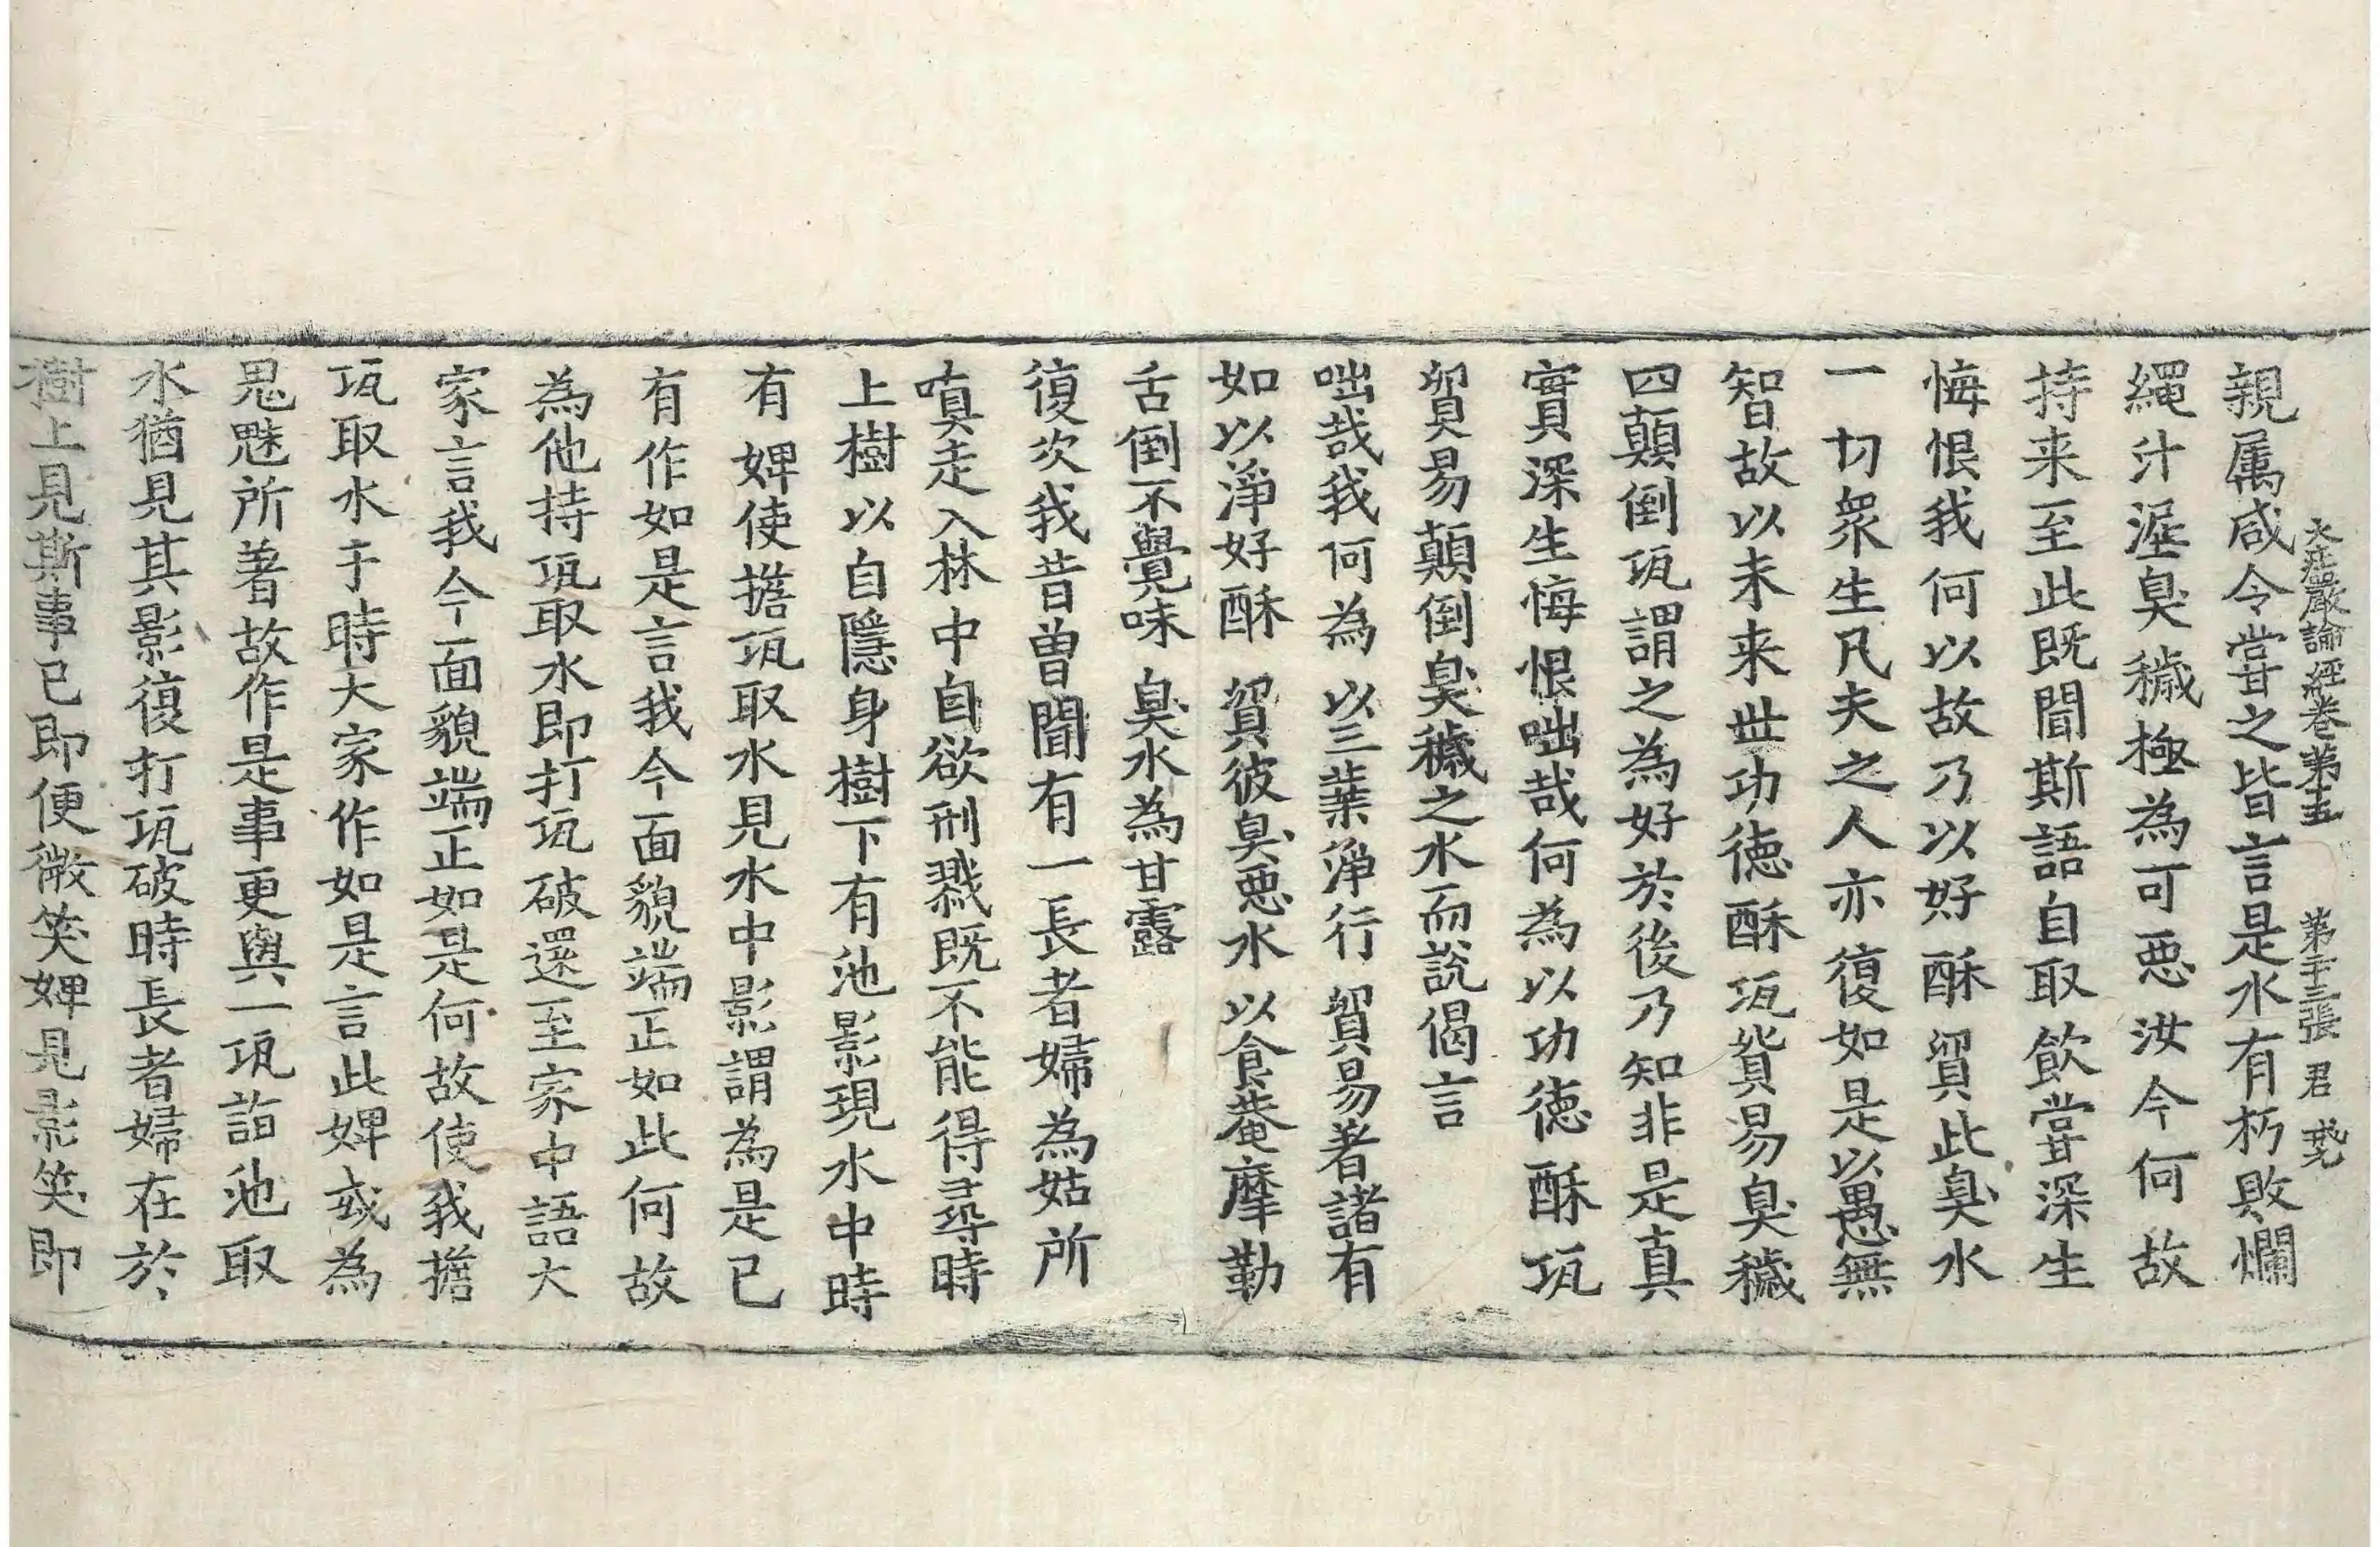 大莊嚴論經卷第五　第十三張　君
親属咸令甞之皆言是水有朽敗爛
繩汁渥臭穢極為可惡汝今何故
持来至此既聞斯語自取飲甞深生
悔恨我何以故乃以好酥貿此臭水
一切眾生凡夫之人亦復如是以愚無
智故以未来世功德酥瓨貿易臭穢
四顛倒瓨謂之為好於後乃知非是真
實深生悔恨咄哉何為以功德酥瓨
貿易顛倒臭穢之水而說偈言
咄哉我何為　以三葉淨行　貿易著諸有
如以淨好酥　貿彼臭惡水　以食菴摩勒
舌倒不覺味　臭水為甘露
復次我昔曽聞有一長者婦為姑所
嗔走入林中自欲刑戮既不能得尋時
上樹以自隱身樹下有池影現水中時
有婢使擔瓨取水見水中影謂為是已
有作如是言我今面貌端正如此何故
為他持瓨取水即打瓨破還至家中語大
家言我今面貌端正如是何故使我擔
瓨取水于時大家作如是言此婢或為
鬼魅所著故作是事更與一瓨詣池取
水猶見其影復打瓨破時長者婦在於
樹上見斯事已即便微笑婢見影笑即